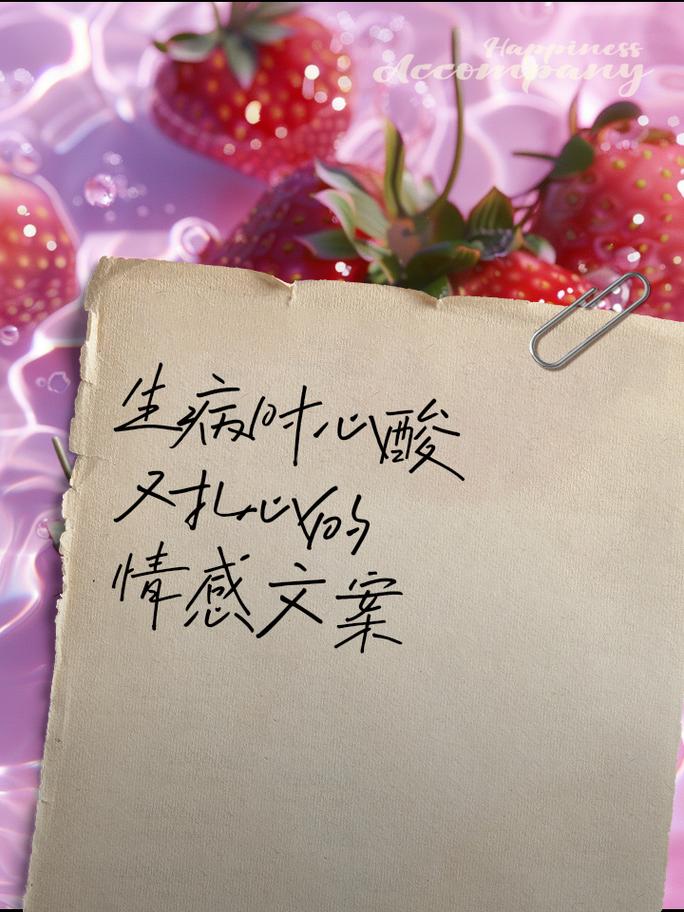 Happiness
Accompany
生病时心酸
又扎心的
情感文案